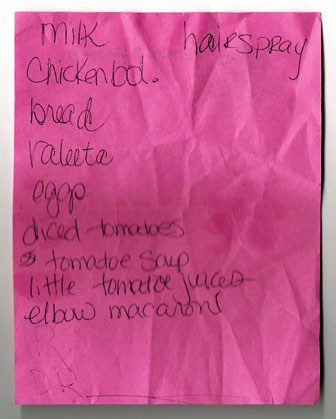 milk hairspray
chicken bol.
bread
valeeta
eggs
diced tomatoes
tomatoe soup
little tomatoe juices
elbow macaroni